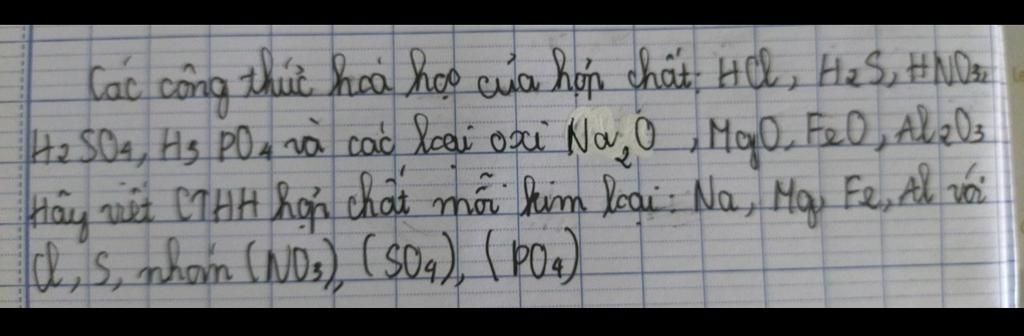 Các công thức hoá học của hợp chất: HCl, H₂S, HNO₃,
H₂SO₄, H₃PO₄ và các loại oxi Na₂O, MgO, FeO, Al₂O₃
Hãy viết CTHH hợp chất mỗi kim loại: Na, Mg, Fe, Al với
Cl, S, nhóm (NO₃), (SO₄), (PO₄)